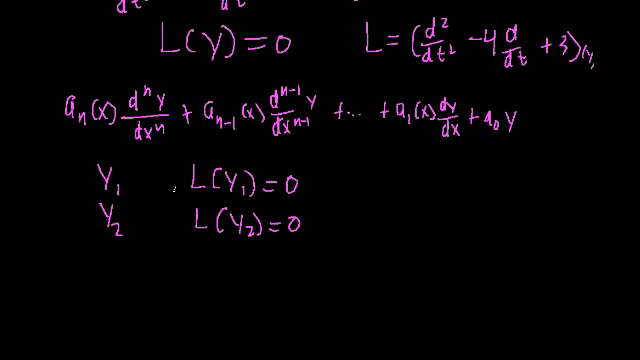 dt² dt
L(y) = 0 L = (d²/dt² - 4 d/dt + 3)(y)
aₙ(x) dⁿy/dxⁿ + aₙ₋₁(x) dⁿ⁻¹y/dxⁿ⁻¹ + ... + a₁(x) dy/dx + a₀ y
y₁ L(y₁) = 0
y₂ L(y₂) = 0